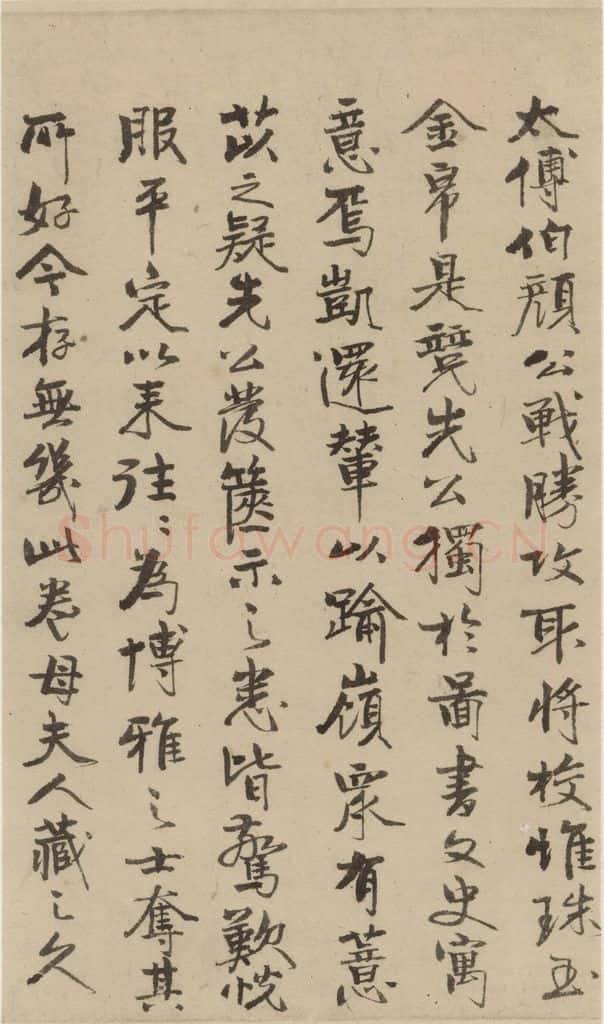 太傅伯顔公戰勝攻取將校惟珠玉
金帛是競先公獨於圖書文史寓
意焉凱還輦以踰嶺衆有薏
苡之疑先公發篋示之悉皆驚歎悦
服平定以来往〻為博雅之士奪其
所好今存無幾此卷母夫人藏之久
Shufawang.CN